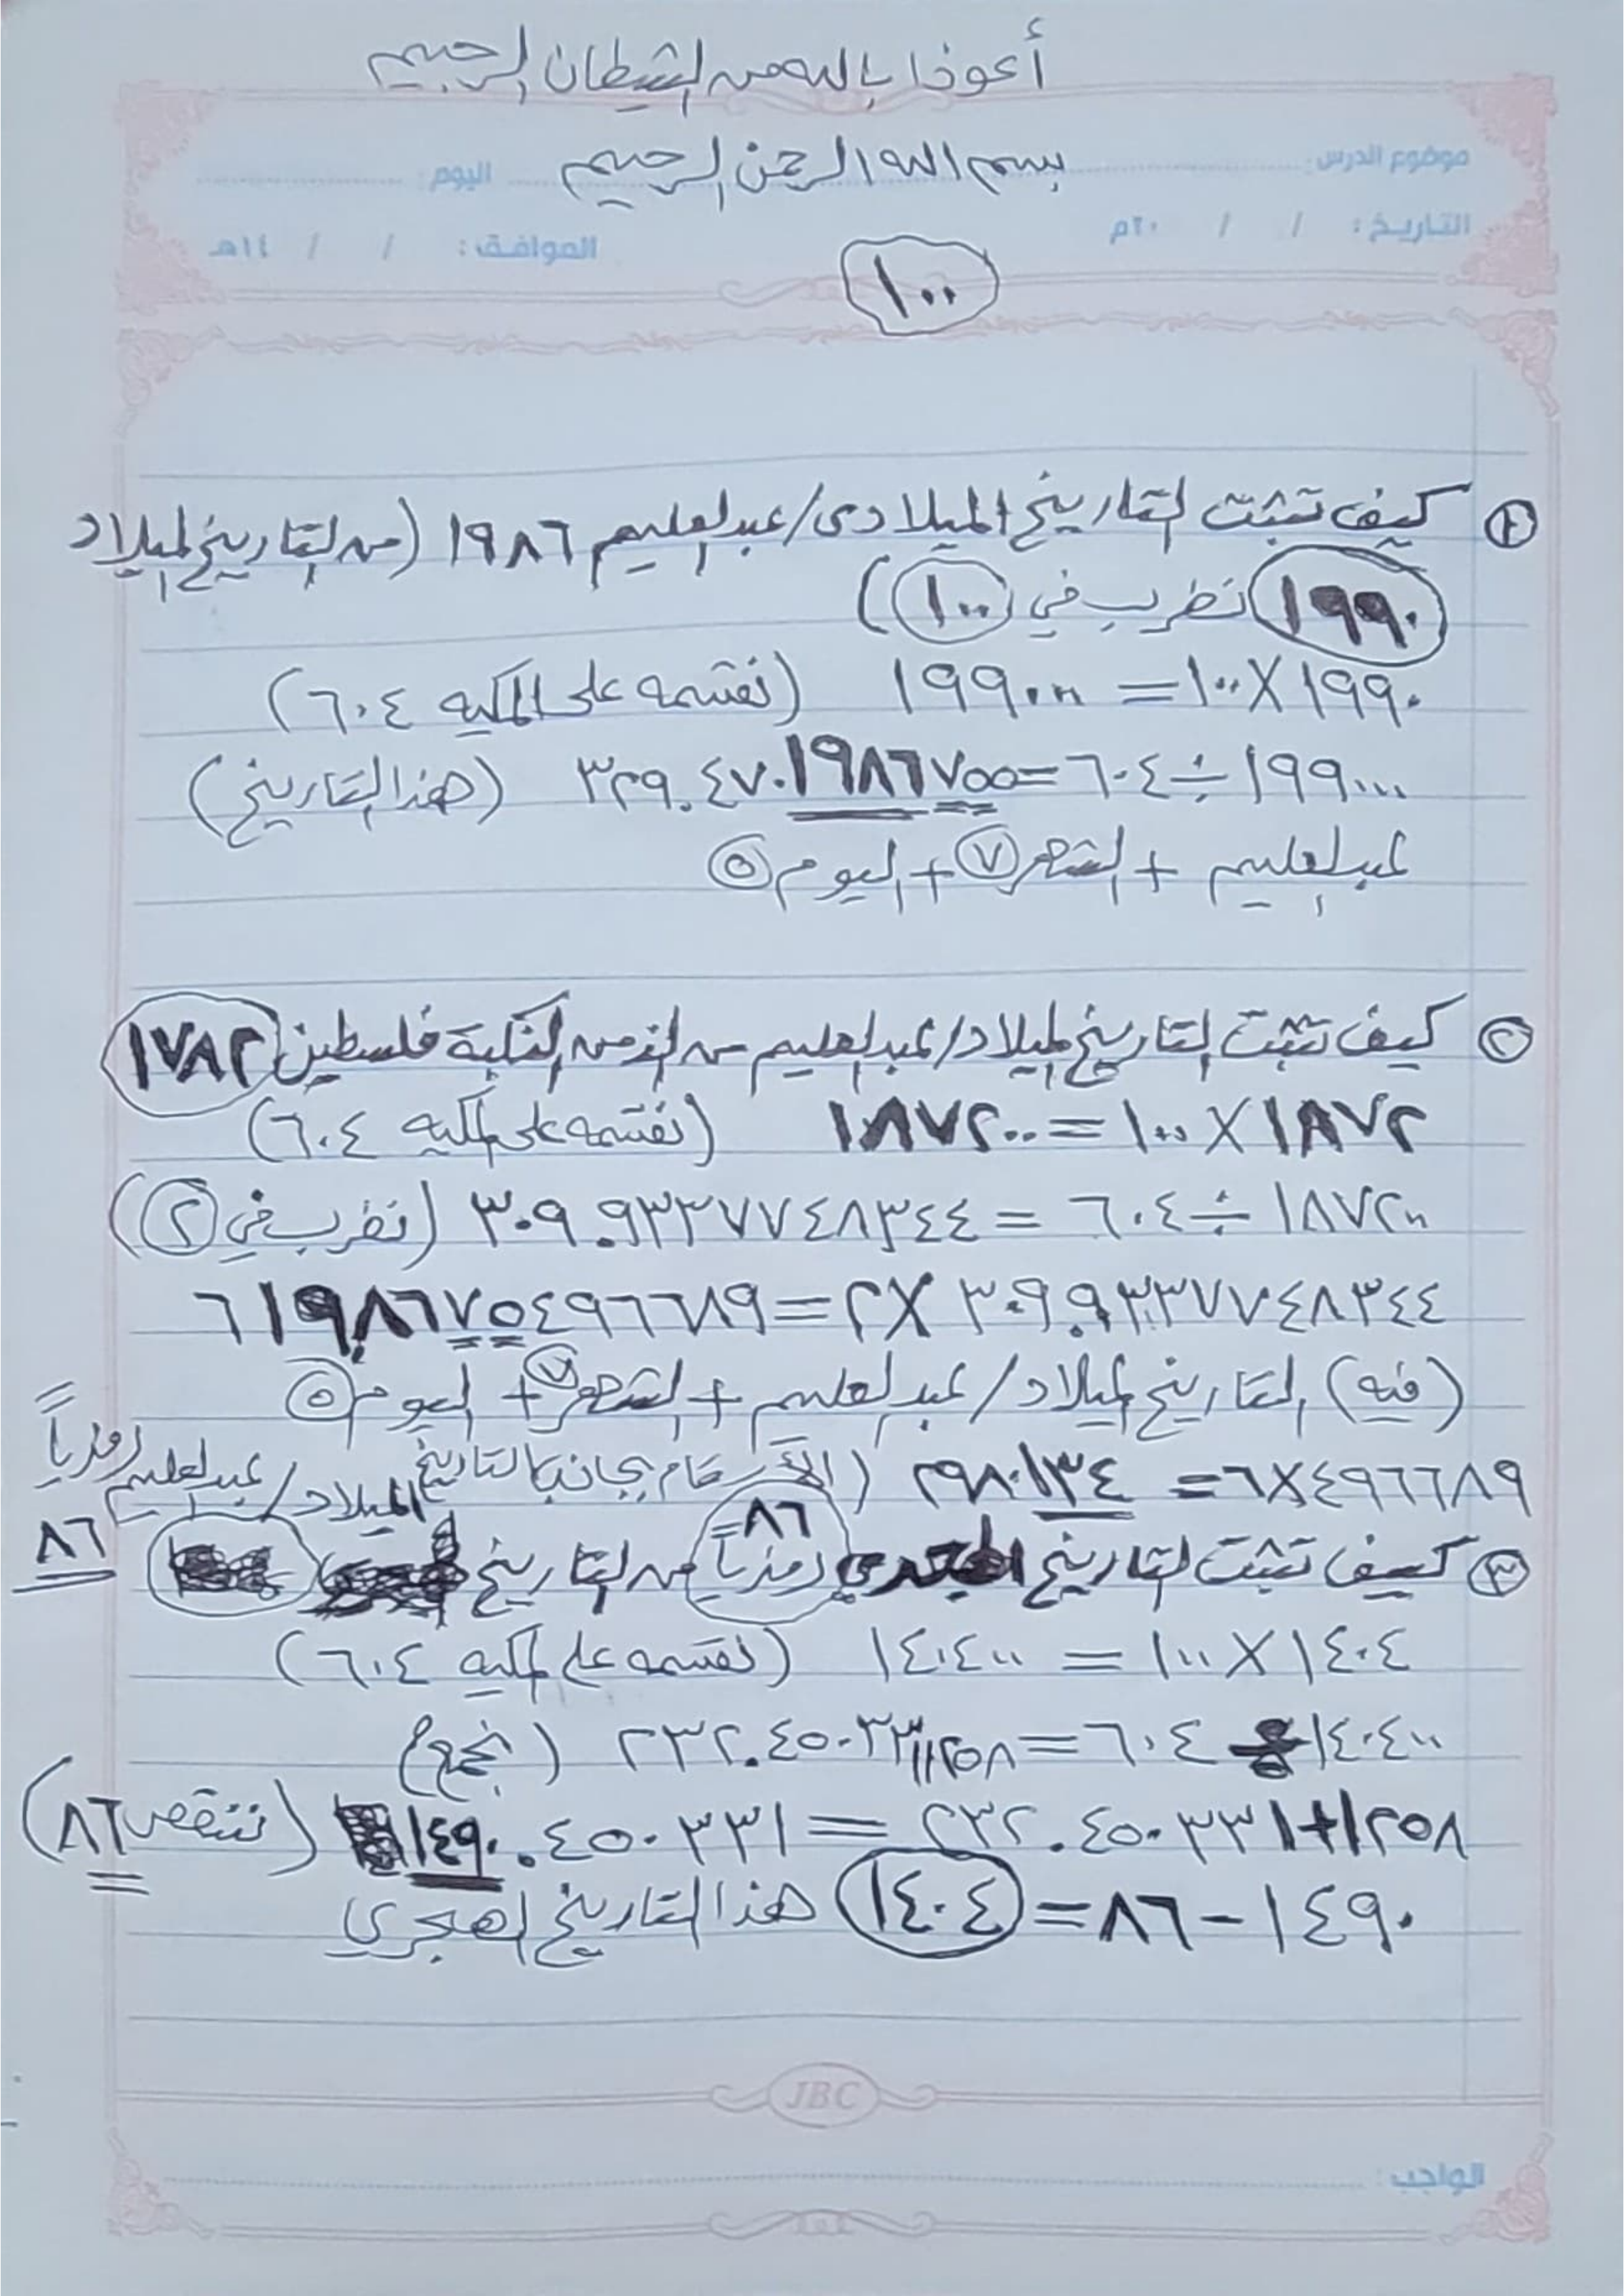 أعوذ بالله من الشيطان الرجيم
بسم الله الرحمن الرحيم
موضوع الدرس: اليوم:
التاريخ: / / ٢٠م الموافق: / / ١٤هـ
١٠٠
① كيف تثبت التاريخ الميلادى/عبدالعليم ١٩٨٦ (من التاريخ الميلاد
١٩٩٠ نظرب في ١٠٠)
١٩٩٠ × ١٠٠ = ١٩٩٠٠٠ (نقسمه على المكيه ٦٠٤)
١٩٩٠٠٠ ÷ ٦٠٤ = ٣٢٩.٤٧٠١٩٨٦٧٥٥ (هذا التاريخ)
عبدالعليم + الشهر ٧ + اليوم ٥
② كيف تثبت التاريخ الميلاد/عبدالعليم من الزمن النكبة فلسطين ١٧٨٢
١٨٧٢ × ١٠٠ = ١٨٧٢٠٠ (نقسمه على المكيه ٦٠٤)
١٨٧٢٠٠ ÷ ٦٠٤ = ٣٠٩.٩٣٣٧٧٤٨٣٤٤ (نظرب في ٢)
٣٠٩.٩٣٣٧٧٤٨٣٤٤ × ٢ = ٦١٩.٨٦٧٥٤٩٦٦٨٩
(فيه) التاريخ الميلاد/عبدالعليم + الشهر ٧ + اليوم ٥
٤٩٦٦٨٩ × ٦ = ٢٩٨٠١٣٤ (الأرقام بجانب التاريخ الميلاد/عبدالعليم رمزياً
٨٦
③ كيف تثبت التاريخ الهجري رمزياً ٨٦ من التاريخ
١٤٠٤ × ١٠٠ = ١٤٠٤٠٠ (نقسمه على المكيه ٦٠٤)
١٤٠٤٠٠ ÷ ٦٠٤ = ٢٣٢.٤٥٠٣٣١١٢٥٨ (نجمع)
٢٣٢.٤٥٠٣٣١+١٢٥٨ = ١٤٩٠.٤٥٠٣٣١ (ننقص ٨٦)
١٤٩٠ - ٨٦ = ١٤٠٤ هذا التاريخ الهجري
JBC
الواجب: